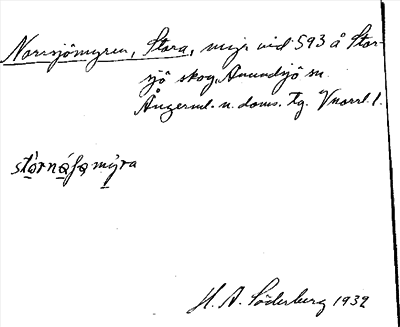 Norrsjömyren, Stora, myr vid 593 å Stor-
sjö skog, Anundsjö sn
Ångerml. n. doms. tg. Vnorrl. l.
stòrnáſamy̆ra
H. A. Söderberg 1932